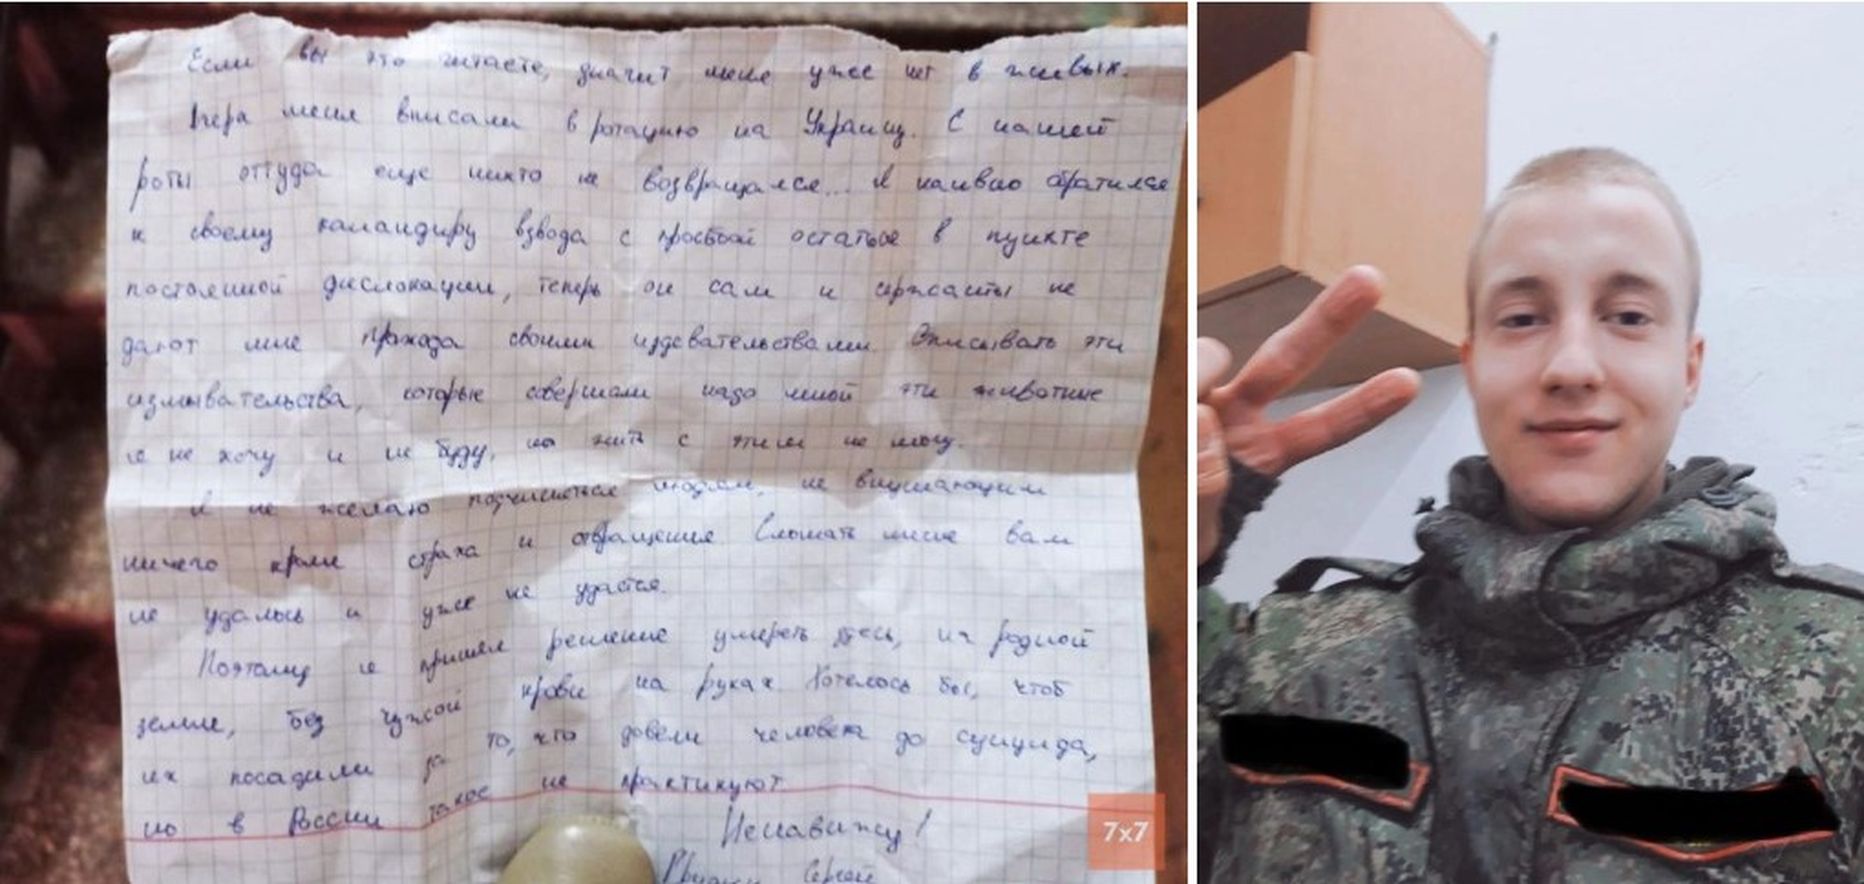 Если вы это читаете, значит меня уже нет в живых.
Вчера меня вписали в ротацию на Украину. С нашей
роты оттуда еще никто не возвращался... Я наивно обратился
к своему командиру взвода с просьбой остаться в пункте
постоянной дислокации, теперь он сам и сержанты не
дают мне прохода своими издевательствами. Описывать эти
измывательства, которые совершали надо мной эти животные
я не хочу и не буду, но жить с этим не могу.
Я не желаю подчиняться людям, не внушающим
ничего кроме страха и отвращения Сломать меня вам
не удалось и уже не удастся.
Поэтому я пришел решение умереть здесь, на родной
земле, без чужой крови на руках. Хотелось бы, чтоб
их посадили за то, что довели человека до суицида,
но в России такое не практикуют
Ненавижу!
Сергей
7x7